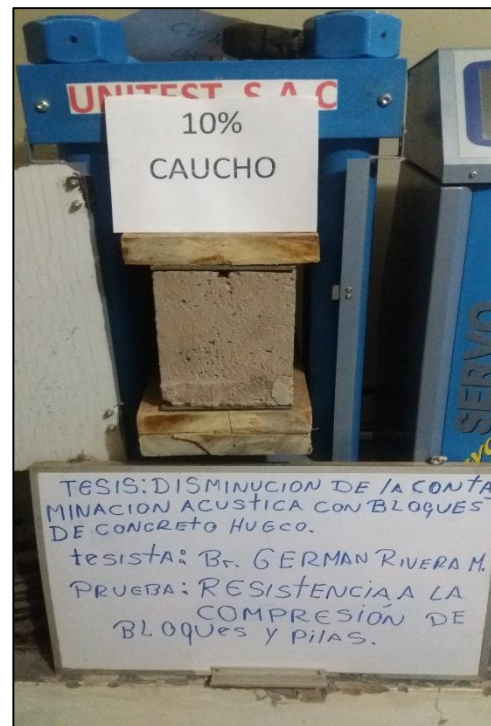 UNITEST S.A.C
10%
CAUCHO
SERVO
TESIS: DISMINUCION DE LA CONTA
MINACION ACUSTICA CON BLOQUES
DE CONCRETO HUECO.
tesista: Br. GERMAN RIVERA M.
PRUEBA: RESISTENCIA A LA
COMPRESIÓN DE
BLOQUES Y PILAS.